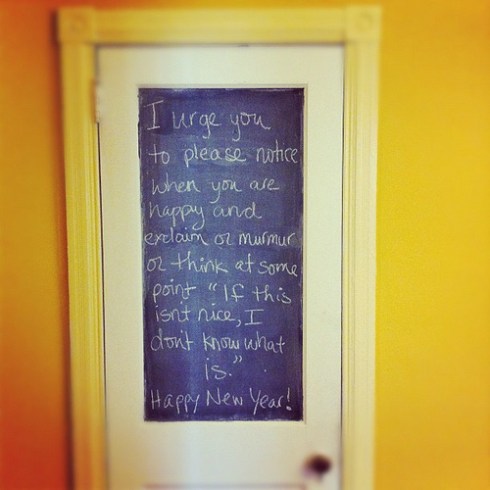 I urge you
to please notice
when you are
happy and
exclaim or murmur
or think at some
point "If this
isn't nice, I
don't know what
is."
Happy New Year!